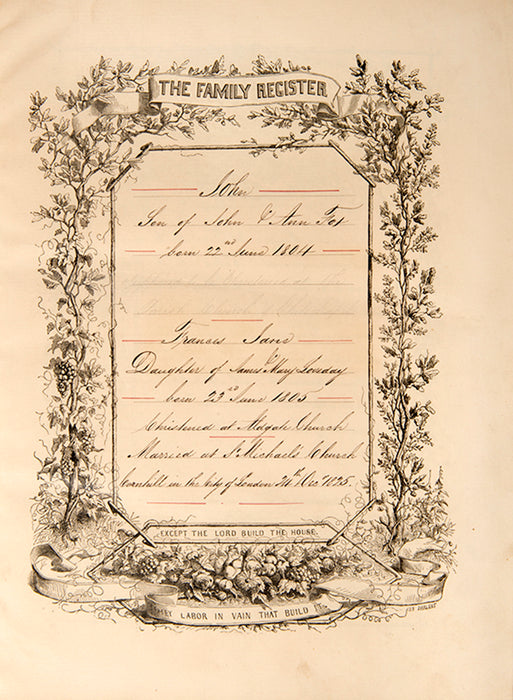 THE FAMILY REGISTER
John
Son of John & Ann Fox
born 22nd June 1804
Frances Jane
Daughter of James & Mary Loveday
born 22nd June 1805
Christened at Aldgate Church
Married at St Michael's Church
Cornhill in the City of London 24th Dec 1825
EXCEPT THE LORD BUILD THE HOUSE
THEY LABOR IN VAIN THAT BUILD IT